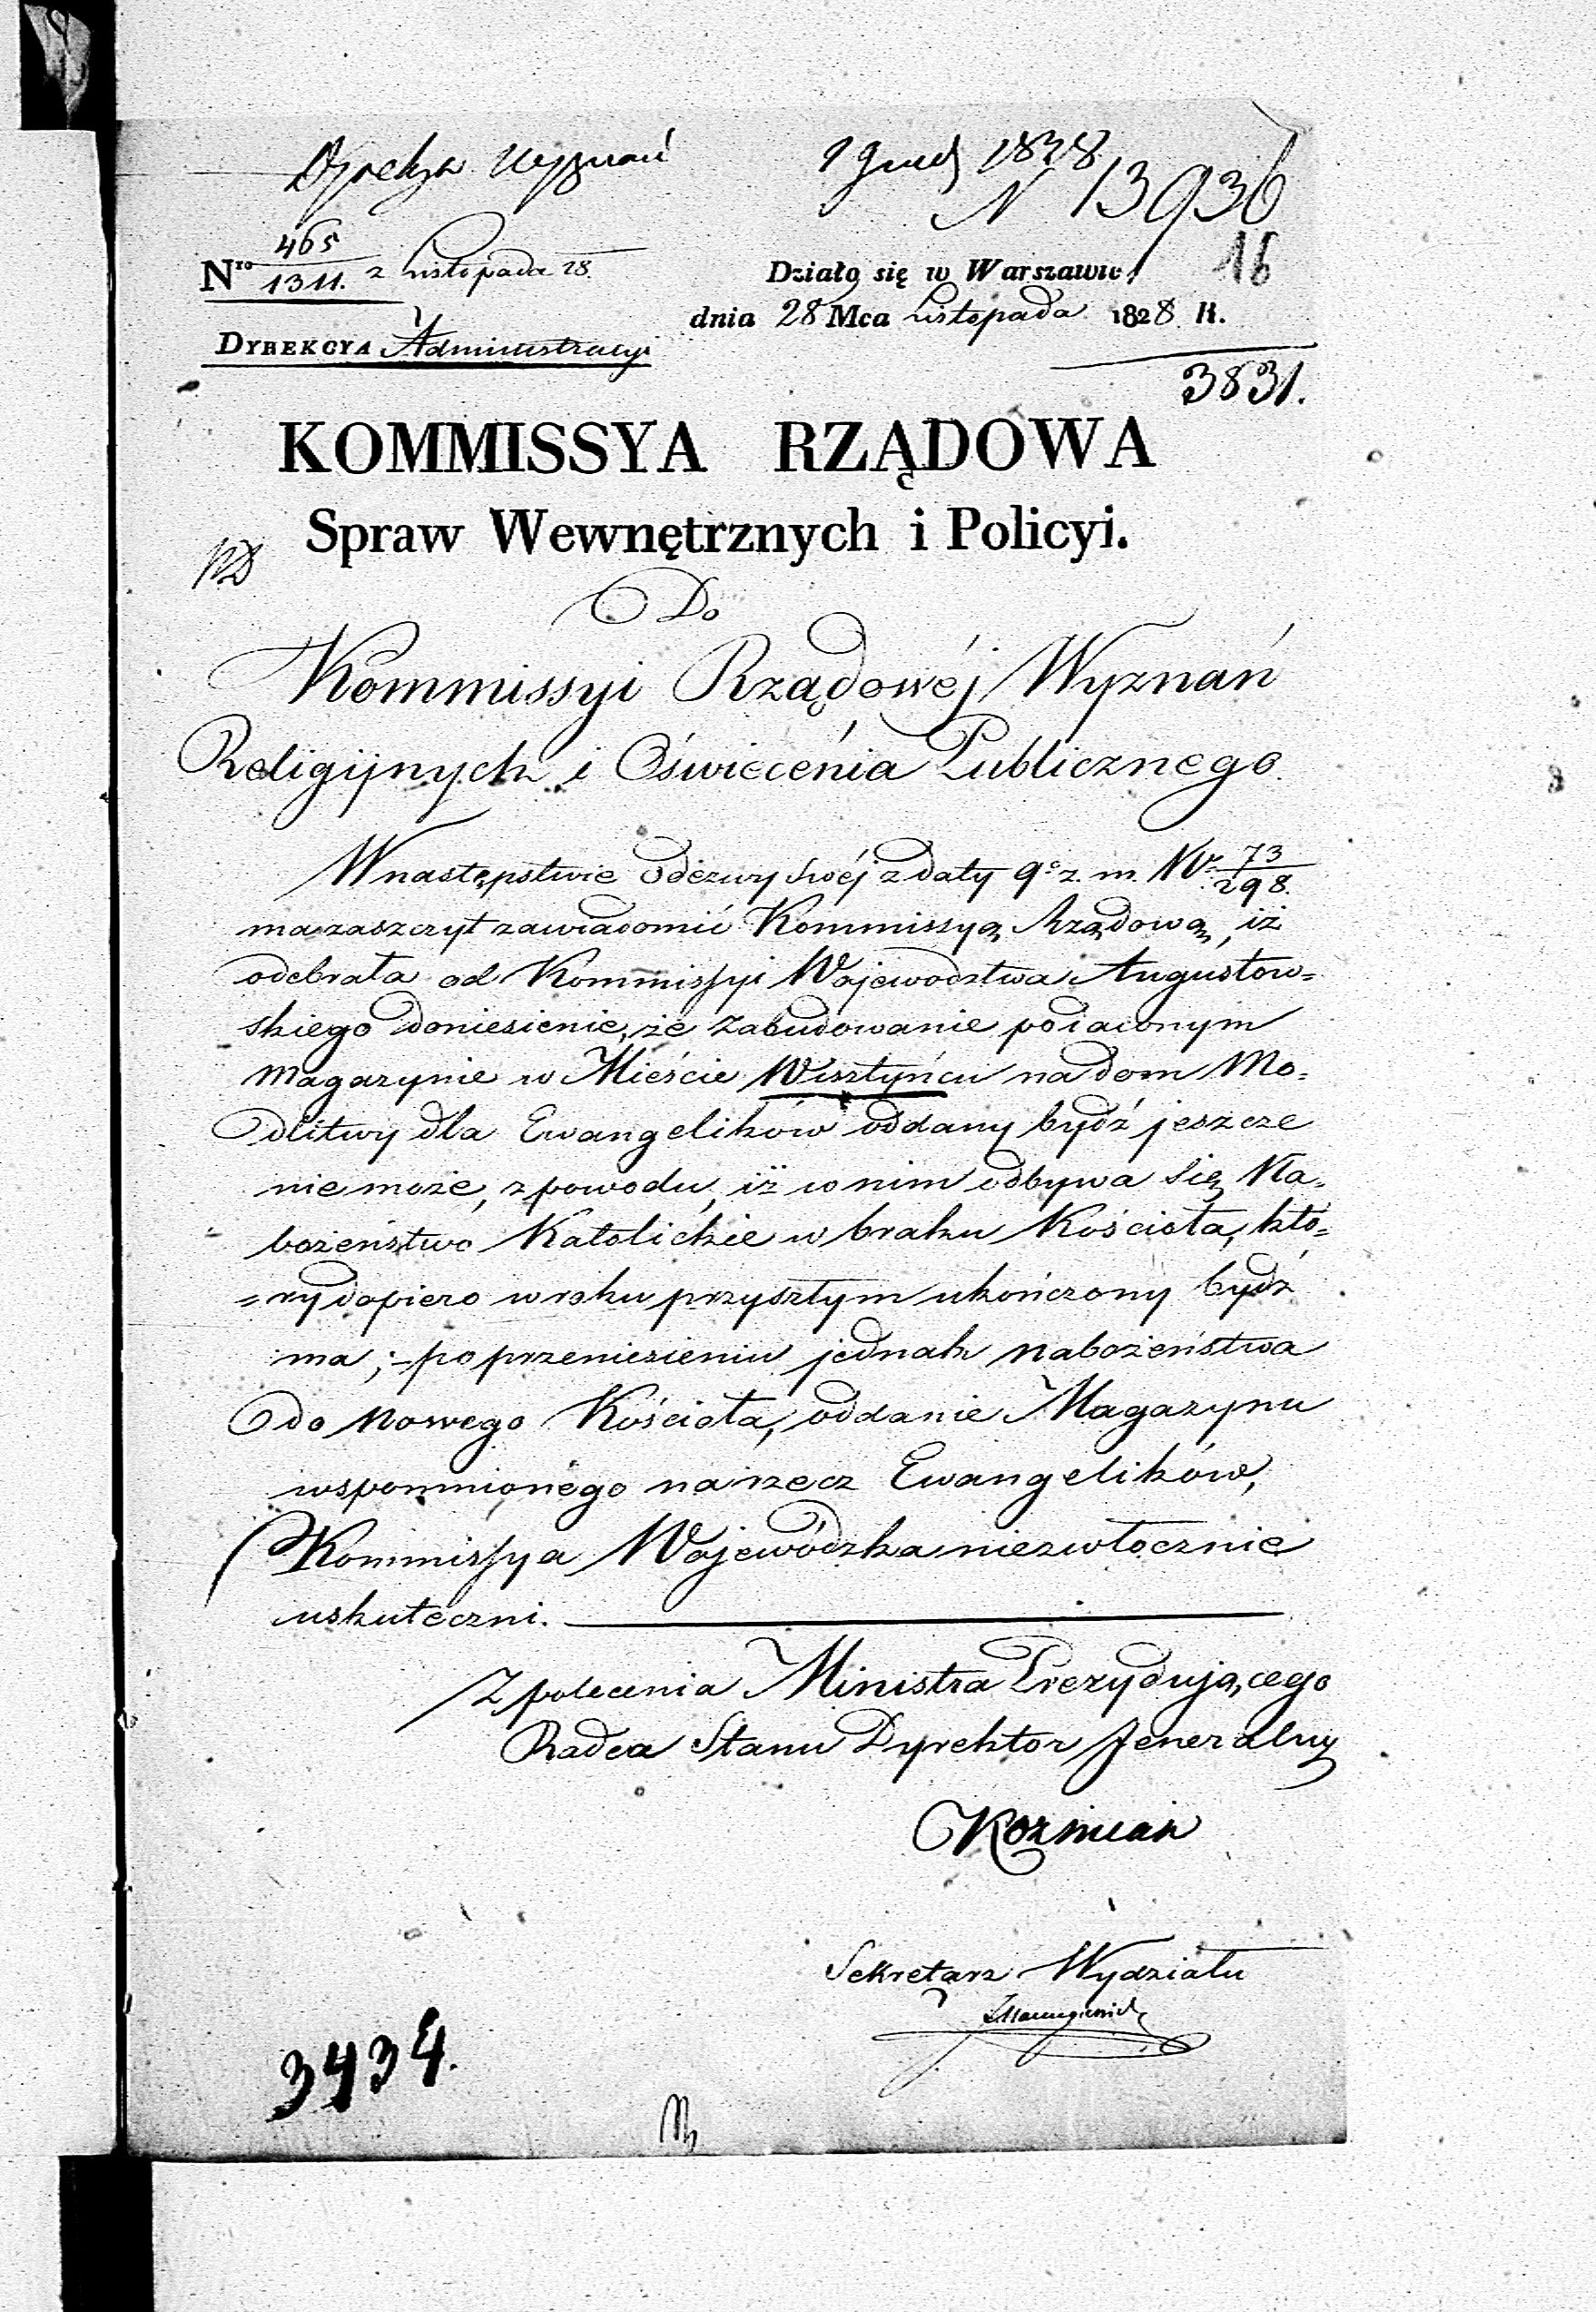 Dyrekcya Wyznań
9 Grud 1828.
N 13936
16
Nro 465/1311. z Listopada 28.
Działo się w Warszawie
dnia 28 Mca Listopada 1828 R.
DYREKCYA Administracyi
3831.
KOMMISSYA RZĄDOWA
Spraw Wewnętrznych i Policyi.
Do
Kommissyi Rządowéj Wyznań
Religijnych i Oświecenia Publicznego.
W następstwie Odezwy swéj z daty 9o z. m. Nr 73/298.
ma zaszczyt zawiadomić Kommissyą Rządową, iż
odebrała od Kommissyi Województwa Augustow=
skiego doniesienie, że Zabudowanie po
Magazynie w Mieście Wisztyńcu na dom Mo=
dlitwy dla Ewangelików oddany bydź jeszcze
nie może, z powodu, iż w nim odbywa się Na=
bożeństwo Katolickie w braku Kościoła, któ=
=ry dopiero w roku przyszłym ukończony bydź
ma; – po przeniesieniu jednak nabożeństwa
do nowego Kościoła, oddanie Magazynu
wspomnionego na rzecz Ewangelików,
Kommissya Wojewódzka niezwłocznie
uskuteczni.
Z polecenia Ministra Prezydującego
Radca Stanu Dyrektor Jeneralny
Koźmian
Sekretarz Wydziału
3434.